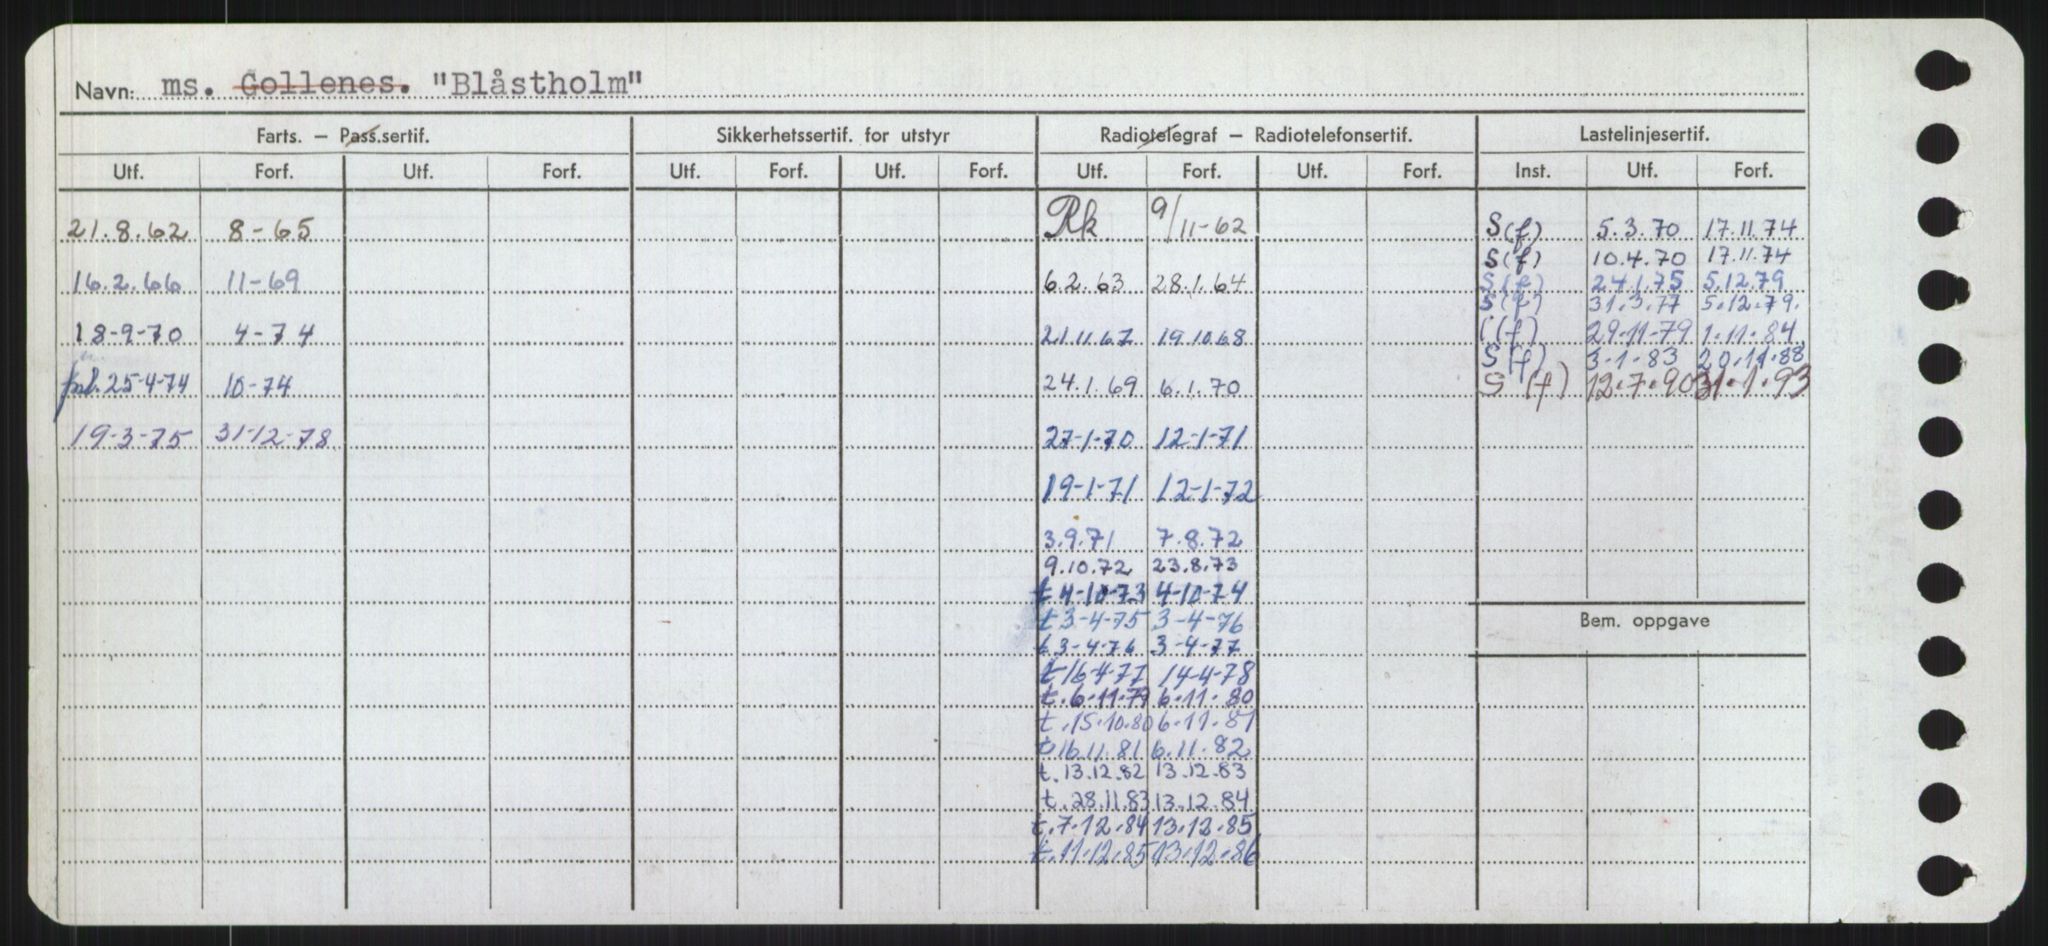 Navn: ms. Gollenes. "Blåstholm"
Farts. — Pass.sertif. Sikkerhetssertif. for utstyr Radiotelegraf — Radiotelefonsertif. Lastelinjesertif.
Utf. Forf. Utf. Forf. Utf. Forf. Utf. Forf. Utf. Forf. Utf. Forf. Inst. Utf. Forf.
21.8.62 8-65 Rk 9/11-62 S(f) 5.3.70 17.11.74
S(f) 10.4.70 17.11.74
16.2.66 11-69 6.2.63 28.1.64 S(f) 24.1.75 5.12.79
S(f) 31.3.77 5.12.79.
18-9-70 4-74 21.11.67 19.10.68 (f) 29-11-79 1.11.84
S(f) 3-1-83 20.11.88
25-4-74 10-74 24.1.69 6.1.70 S(f) 12.7.90 31.1.93
19-3-75 31-12-78 27-1-70 12-1-71
19-1-71 12-1-72
3.9.71 7.8.72
9.10.72 23.8.73
t 4-10-73 4-10-74
t 3-4-75 3-4-76 Bem. oppgave
t 3-4-76 3-4-77
t 16-4-77 14-4-78
t. 6.11.79 6.11.80
t. 15.10.80 6.11.81
t 16.11.81 6.11.82
t. 13.12.82 13.12.83
t. 28.11.83 13.12.84
t. 7.12.84 13.12.85
t. 11.12.85 13.12.86